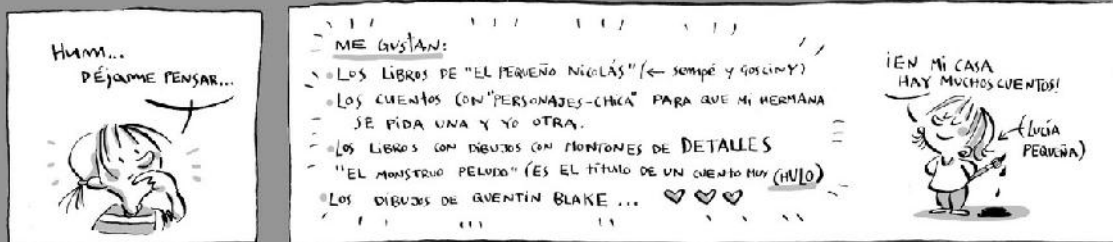 Hum...
DÉJAME PENSAR...
ME GUSTAN:
LOS LIBROS DE "EL PEQUEÑO NICOLÁS" (← sempé y GOSCINY)
LOS CUENTOS CON "PERSONAJES-CHICA" PARA QUE MI HERMANA
SE PIDA UNA Y YO OTRA.
LOS LIBROS CON DIBUJOS CON MONTONES DE DETALLES
"EL MONSTRUO PELUDO" (ES EL TÍTULO DE UN CUENTO MUY CHULO)
LOS DIBUJOS DE QUENTIN BLAKE ... ♡ ♡ ♡
¡EN MI CASA
HAY MUCHOS CUENTOS!
(LUCÍA
PEQUEÑA)